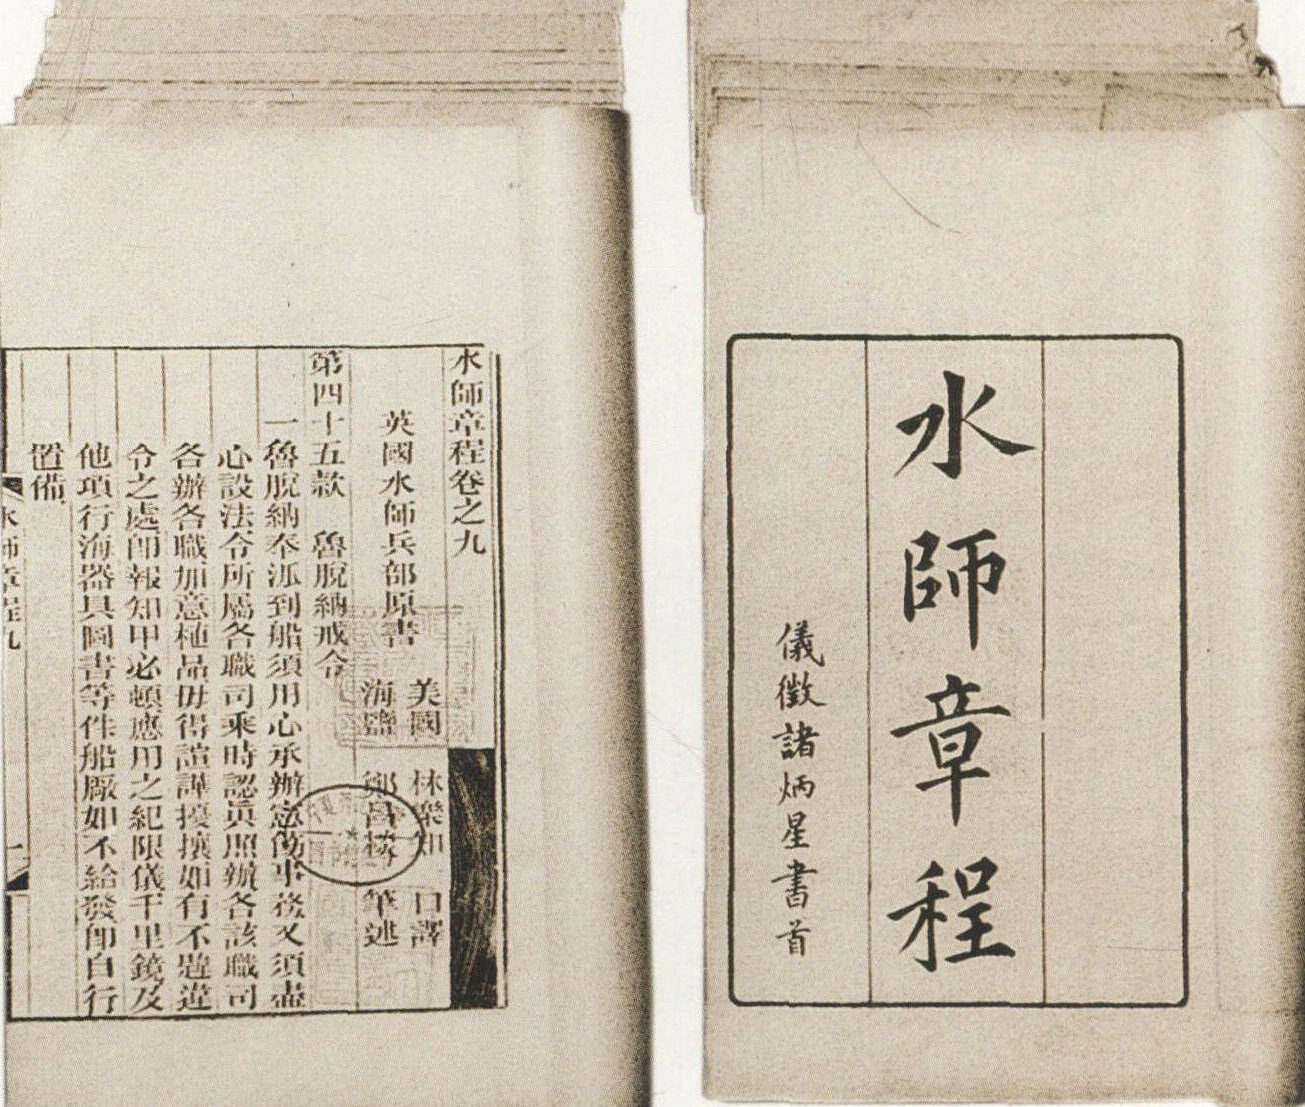 水師章程
儀徵諸炳星書首
水師章程卷之九
英國水師兵部原書
美國 林樂知 口譯
海鹽 鄭昌棪 筆述
第四十五款 魯脫納戒令
一魯脫納奉派到船須用心承辦憲飭事務又須盡
心設法令所屬各職司乘時認眞照辦各該職司
各辦各職加意植品毋得諠譁擾攘如有不遵
令之處卽報知甲必頓應用之紀限儀千里鏡及
他項行海器具圖書等件船廠如不給發卽自行
置備
水師章程九
一